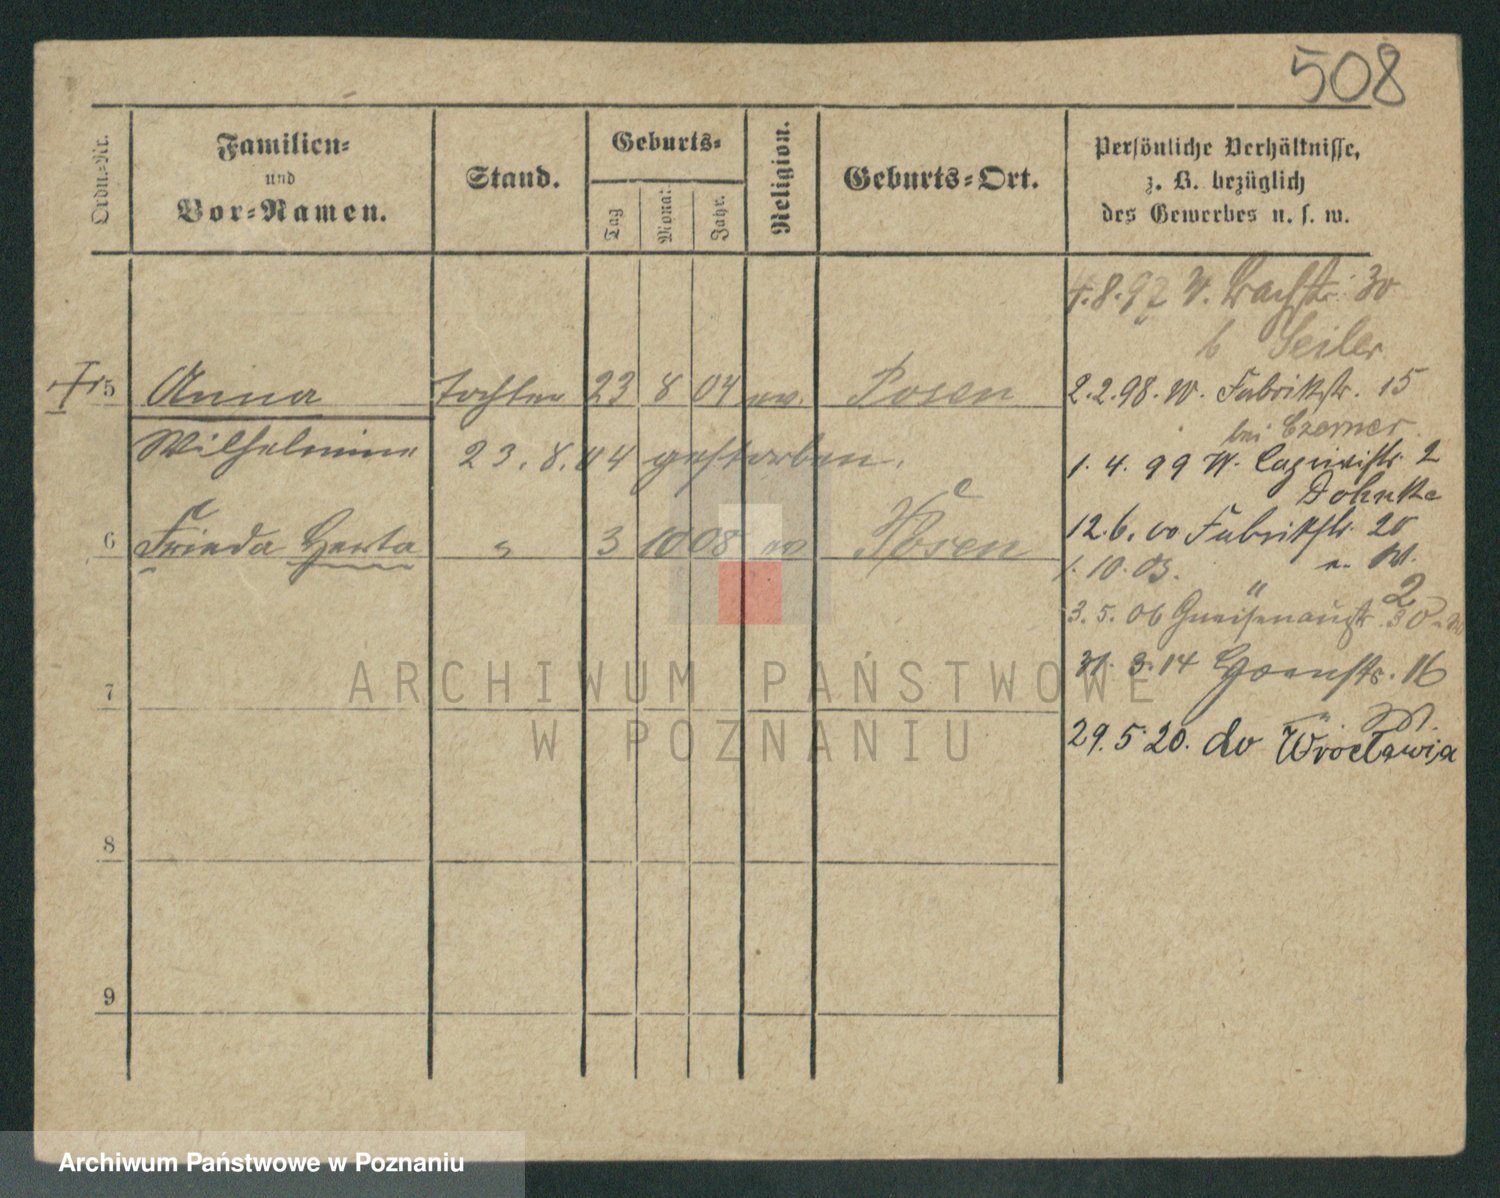 508
Ordn.-Nr.
Familien-
und
Vor-Namen.
Stand.
Geburts-
Tag
Monat
Jahr.
Religion.
Geburts-Ort.
Persönliche Verhältnisse,
z. B. bezüglich
des Gewerbes u. s. w.
4.8.97 W. Bachstr. 30
b Seiler
5 Anna Tochter 23 8 04 ev. Posen
2.2.98. W. Fabrikstr. 15
bei Czerner
Wilhelmine 23.8.04 gestorben.
1.4.99 W. 2
Dohnke
6 Frieda Herta " 3 10 08 ev Posen
12.6.00 Fabrikstr. 20
1.10.03. " W.
3.5.06 Gneisenaustr. 30
2
7
31.3.14 16
W.
29.5.20. do Wrocławia
8
9
ARCHIWUM PAŃSTWOWE
W POZNANIU
Archiwum Państwowe w Poznaniu